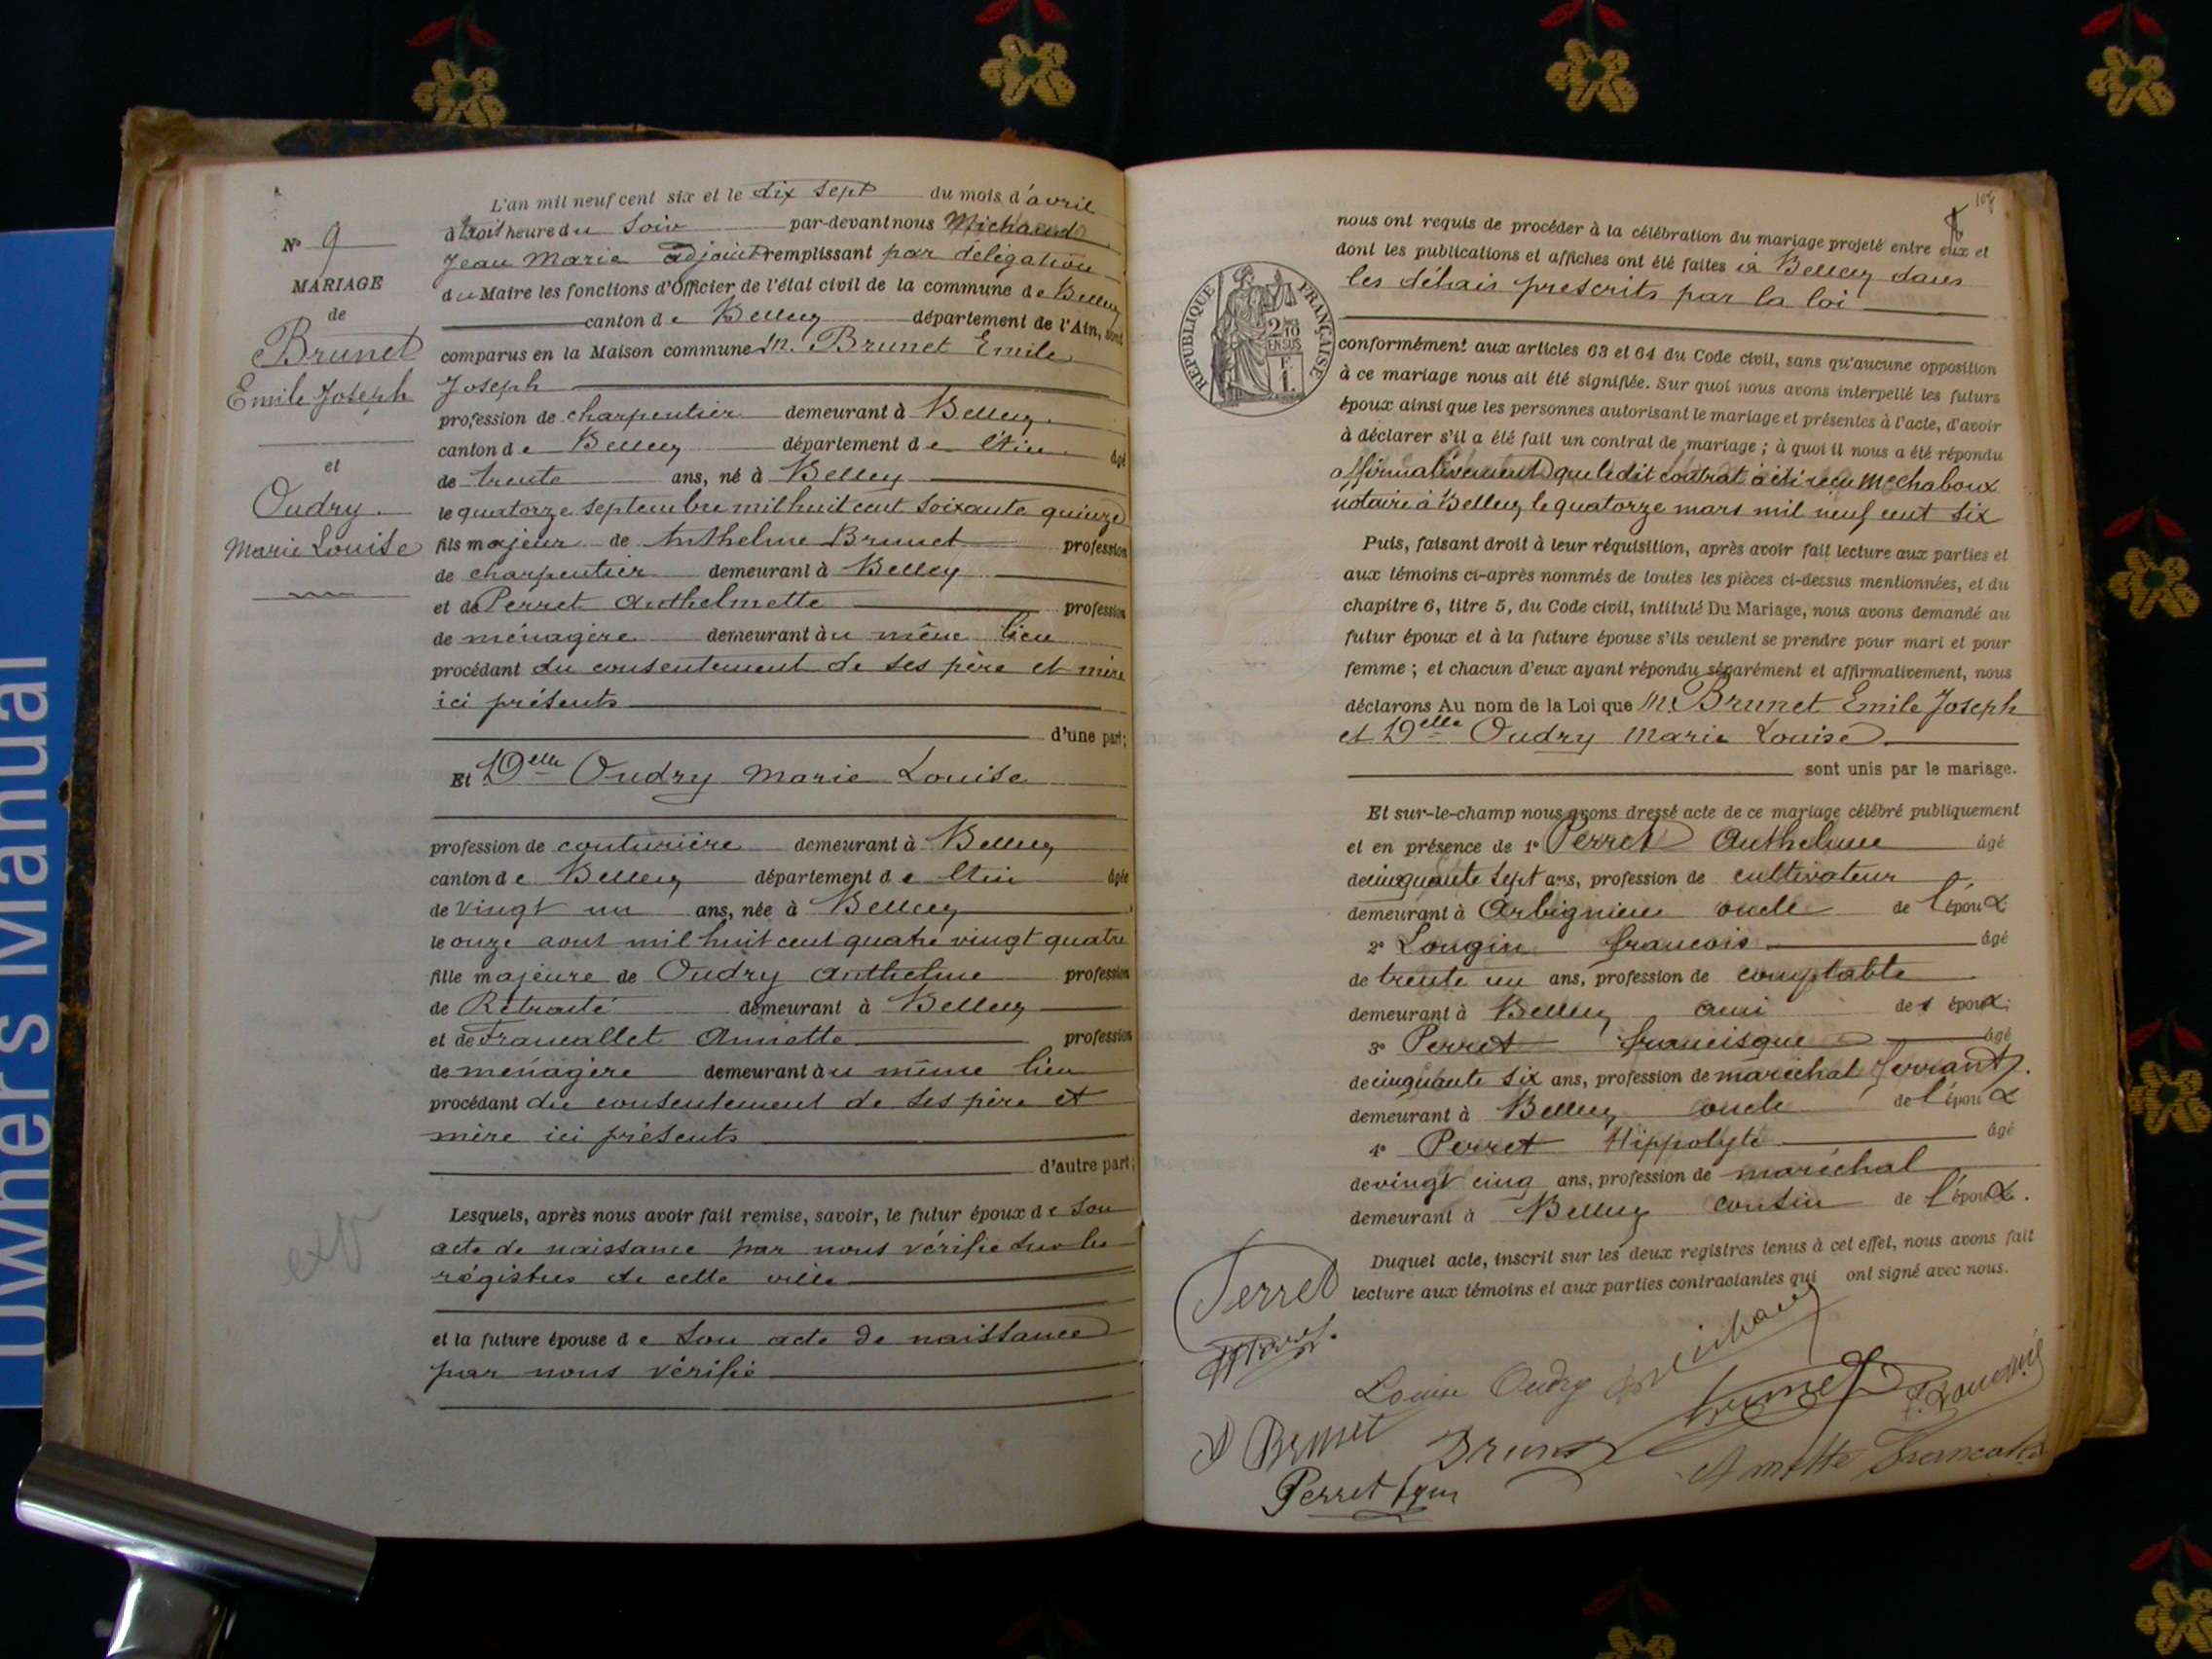 Owner's Manual
N° 9
MARIAGE
de
Brunet
Emile Joseph
et
Oudry
Marie Louise
L'an mil neuf cent six et le dix sept du mois d'avril
à trois heure du soir par-devant nous Michaud
Jean Marie adjoint remplissant par délégation
du Maire les fonctions d'Officier de l'état civil de la commune de Belley
canton de Belley département de l'Ain, sont
comparus en la Maison commune M. Brunet Emile
Joseph
profession de charpentier demeurant à Belley
canton de Belley département de l'Ain âgé
de trente ans, né à Belley
le quatorze septembre mil huit cent soixante quinze
fils majeur de Anthelme Brunet profession
de charpentier demeurant à Belley
et de Perret Anthelmette profession
de ménagère demeurant au même lieu
procédant du consentement de ses père et mère
ici présents
d'une part;
Et Delle Oudry Marie Louise
profession de couturière demeurant à Belley
canton de Belley département de l'Ain âgée
de vingt un ans, née à Belley
le onze aout mil huit cent quatre vingt quatre
fille majeure de Oudry Anthelme profession
de Retraité demeurant à Belley
et de Francallet Annette profession
de ménagère demeurant au même lieu
procédant du consentement de ses père et
mère ici présents
d'autre part;
Lesquels, après nous avoir fait remise, savoir, le futur époux de son
acte de naissance par nous vérifié sur les
régistres de cette ville
et la future épouse de son acte de naissance
par nous vérifié
ext
nous ont requis de procéder à la célébration du mariage projeté entre eux et
dont les publications et affiches ont été faites à Belley dans
les délais prescrits par la loi
RÉPUBLIQUE FRANÇAISE
2/10 EN SUS
F. 1.
conformément aux articles 63 et 64 du Code civil, sans qu'aucune opposition
à ce mariage nous ait été signifiée. Sur quoi nous avons interpellé les futurs
époux ainsi que les personnes autorisant le mariage et présentes à l'acte, d'avoir
à déclarer s'il a été fait un contrat de mariage; à quoi il nous a été répondu
affirmativement que le dit contrat a été reçu Me Chaboux
notaire à Belley le quatorze mars mil neuf cent six
Puis, faisant droit à leur réquisition, après avoir fait lecture aux parties et
aux témoins ci-après nommés de toutes les pièces ci-dessus mentionnées, et du
chapitre 6, titre 5, du Code civil, intitulé Du Mariage, nous avons demandé au
futur époux et à la future épouse s'ils veulent se prendre pour mari et pour
femme; et chacun d'eux ayant répondu séparément et affirmativement, nous
déclarons Au nom de la Loi que M. Brunet Emile Joseph
et Delle Oudry Marie Louise
sont unis par le mariage.
Et sur-le-champ nous avons dressé acte de ce mariage célébré publiquement
et en présence de 1° Perret Anthelme âgé
de cinquante sept ans, profession de cultivateur
demeurant à Arbignieu oncle de l'époux
2° Longin francois âgé
de trente un ans, profession de comptable
demeurant à Belley ami des époux;
3° Perret francisque âgé
de cinquante six ans, profession de maréchal ferrant.
demeurant à Belley oncle de l'époux
4° Perret Hippolyte âgé
de vingt cinq ans, profession de maréchal
demeurant à Belley cousin de l'époux.
Duquel acte, inscrit sur les deux registres tenus à cet effet, nous avons fait
lecture aux témoins et aux parties contractantes qui ont signé avec nous.
Perret
Michaud
Louise Oudry
Brunet
A Brunet
Brunet
Annette Francallet
Perret